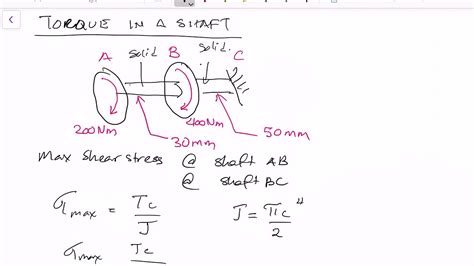 TORQUE IN A SHAFT
A solid B solid C
200Nm 400Nm 50mm
30mm
max shear stress @ shaft AB
@ shaft BC
σmax = Tc/J J = πc⁴/2
σmax Tc